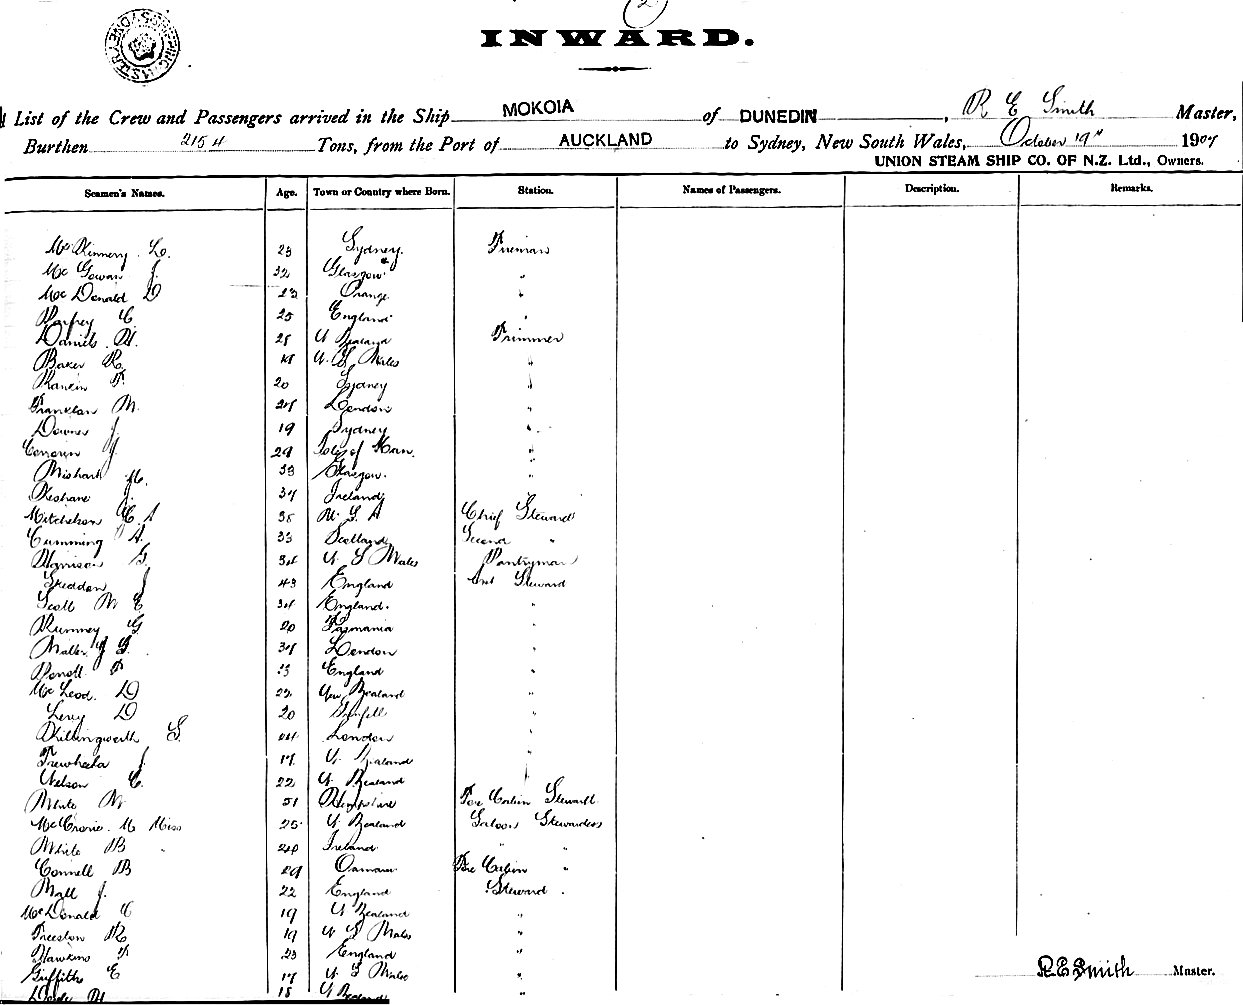 2
SHIPPING MASTER SYDNEY
INWARD.
List of the Crew and Passengers arrived in the Ship MOKOIA of DUNEDIN, R E Smith Master,
Burthen 2154 Tons, from the Port of AUCKLAND to Sydney, New South Wales, October 19th 1907
UNION STEAM SHIP CO. OF N.Z. Ltd., Owners.
Seamen's Names. Age. Town or Country where Born. Station. Names of Passengers. Description. Remarks.
23 Sydney. Fireman
Mc Gowan J. 32 Glasgow "
Mc Donald D 23 Orange "
25 England "
Daniels H. 28 N Zealand Trimmer
Baker R. 18 N. S. Wales "
Rankin F. 20 Sydney "
Franklan M. 24 London "
Downes J. 19 Sydney "
J 29 Isle of Man. "
33 Glasgow. "
J. 34 Ireland "
Mitchelson C A 38 U S A Chief Steward
Cumming A. 33 Scotland Second "
Morrison G. 34 N S Wales Pantryman
Seddon J 43 England Ant Steward
Scott M E 34 England. "
Rumney G 20 Tasmania "
34 London "
England "
Mc Leod. D 22 New Zealand "
Levy D 20 "
Killingworth S. London "
Trewheela J 17 N. Zealand "
Nelson C. 22 N Zealand "
White W 51 Hampshire Fore Cabin Steward
McCrorie. M Miss 25 N Zealand Saloon Stewardess
White B 40 Ireland " "
Connell B 29 Oamaru Fore Cabin "
J. 22 England Steward .
McDonald C 19 N Zealand "
Freeston R 19 N S Wales "
Hawkins F 23 England "
Griffiths E 17 N S Wales "
18 N Zealand "
R E Smith Master.